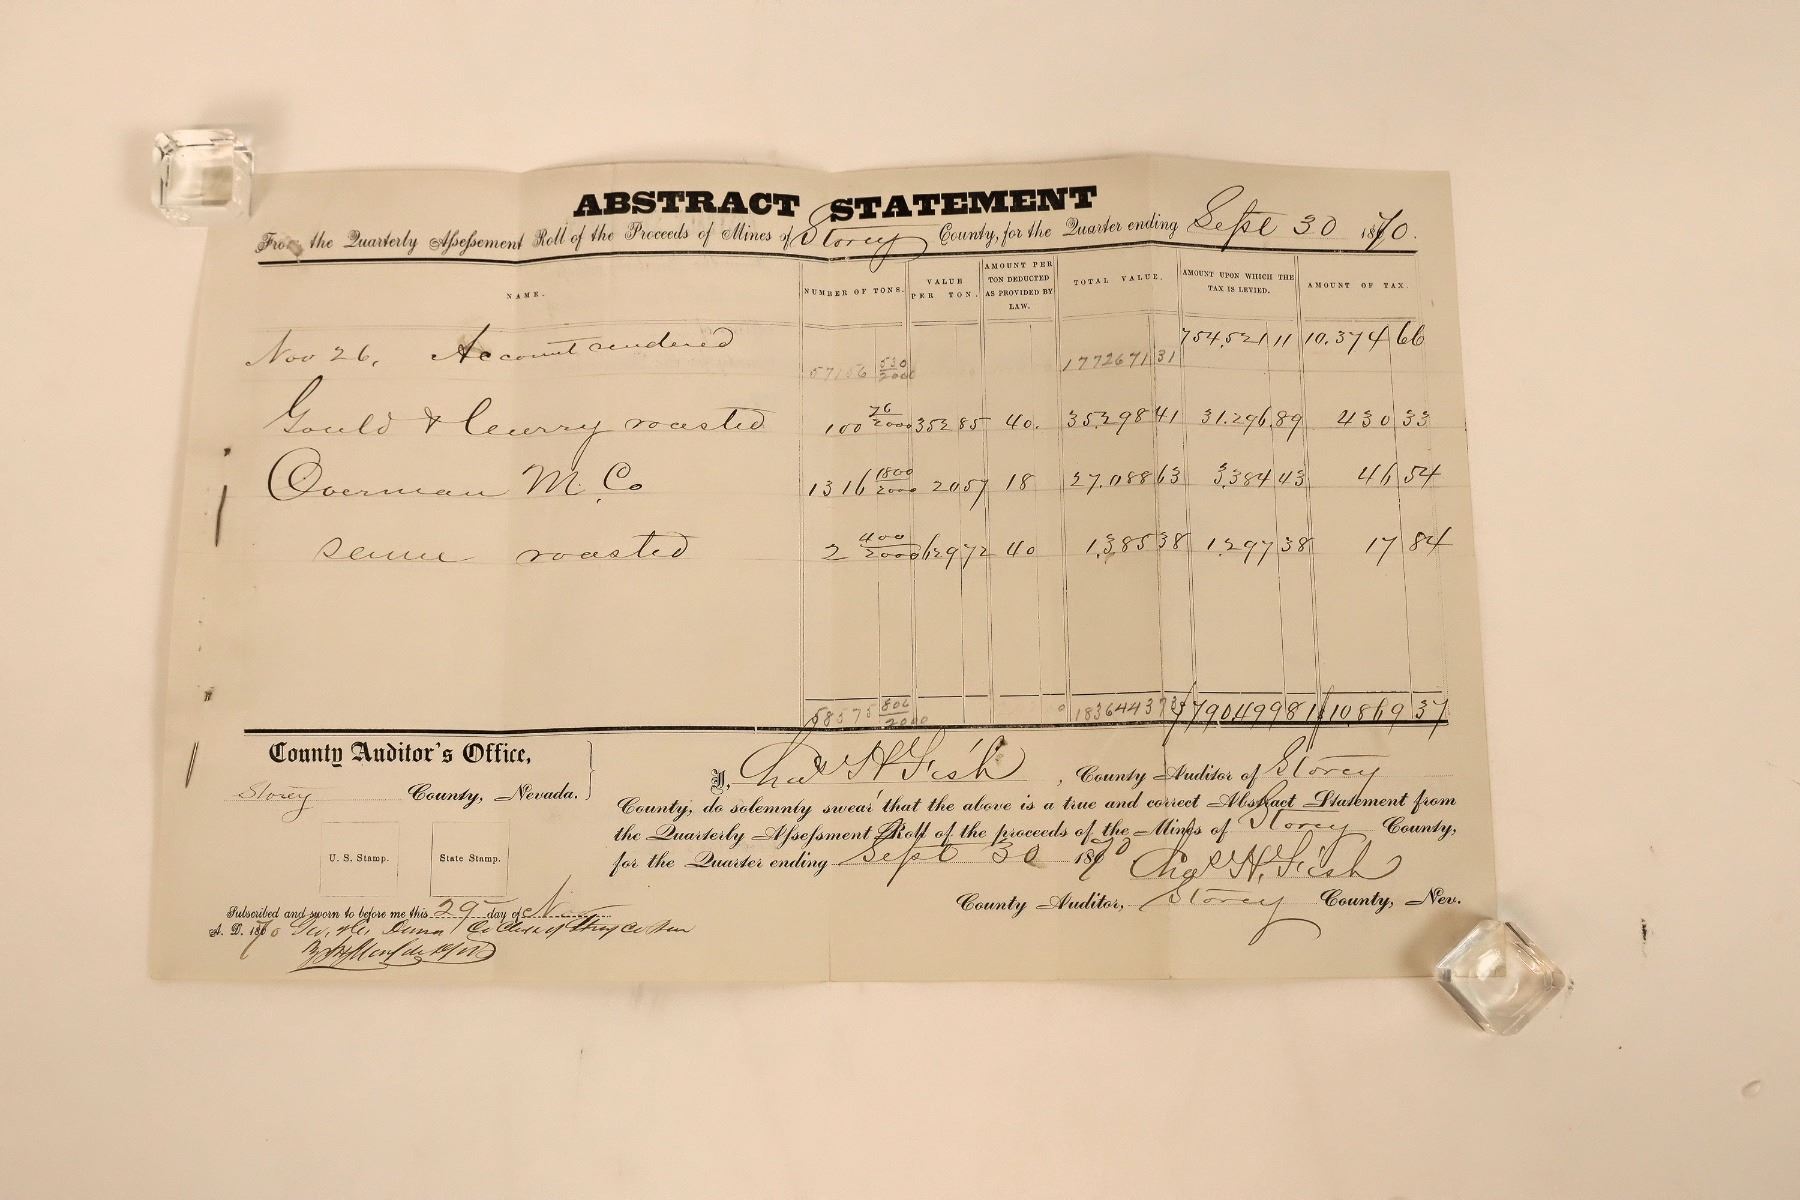 ABSTRACT STATEMENT
From the Quarterly Assessment Roll of the Proceeds of Mines of Storey County, for the Quarter ending Sept 30 1870.
NAME. NUMBER OF TONS. VALUE PER TON. AMOUNT PER TON DEDUCTED AS PROVIDED BY LAW. TOTAL VALUE. AMOUNT UPON WHICH THE TAX IS LEVIED. AMOUNT OF TAX.
Nov 26, Account rendered 57156 530/2000 1772671 31 754,521 11 10,374 66
Gould & Curry roasted 100 76/2000 352 85 40. 35,298 41 31,296 89 430 33
Overman M. Co 1316 1800/2000 20 57 18 27,088 63 3,384 43 46 54
same roasted 2 400/2000 629 72 40 1,385 38 1,297 38 17 84
58575 806/2000 1836443 73 790499 81 10,869 37
County Auditor's Office,
Storey County, Nevada.
U. S. Stamp. State Stamp.
Subscribed and sworn to before me this 29 day of
A. D. 1870 Co Clerk of Storey Co
I, Chas H. Fish, County Auditor of Storey
County, do solemnly swear that the above is a true and correct Abstract Statement from
the Quarterly Assessment Roll of the proceeds of the Mines of Storey County,
for the Quarter ending Sept 30 1870 Chas H. Fish
County Auditor, Storey County, Nev.